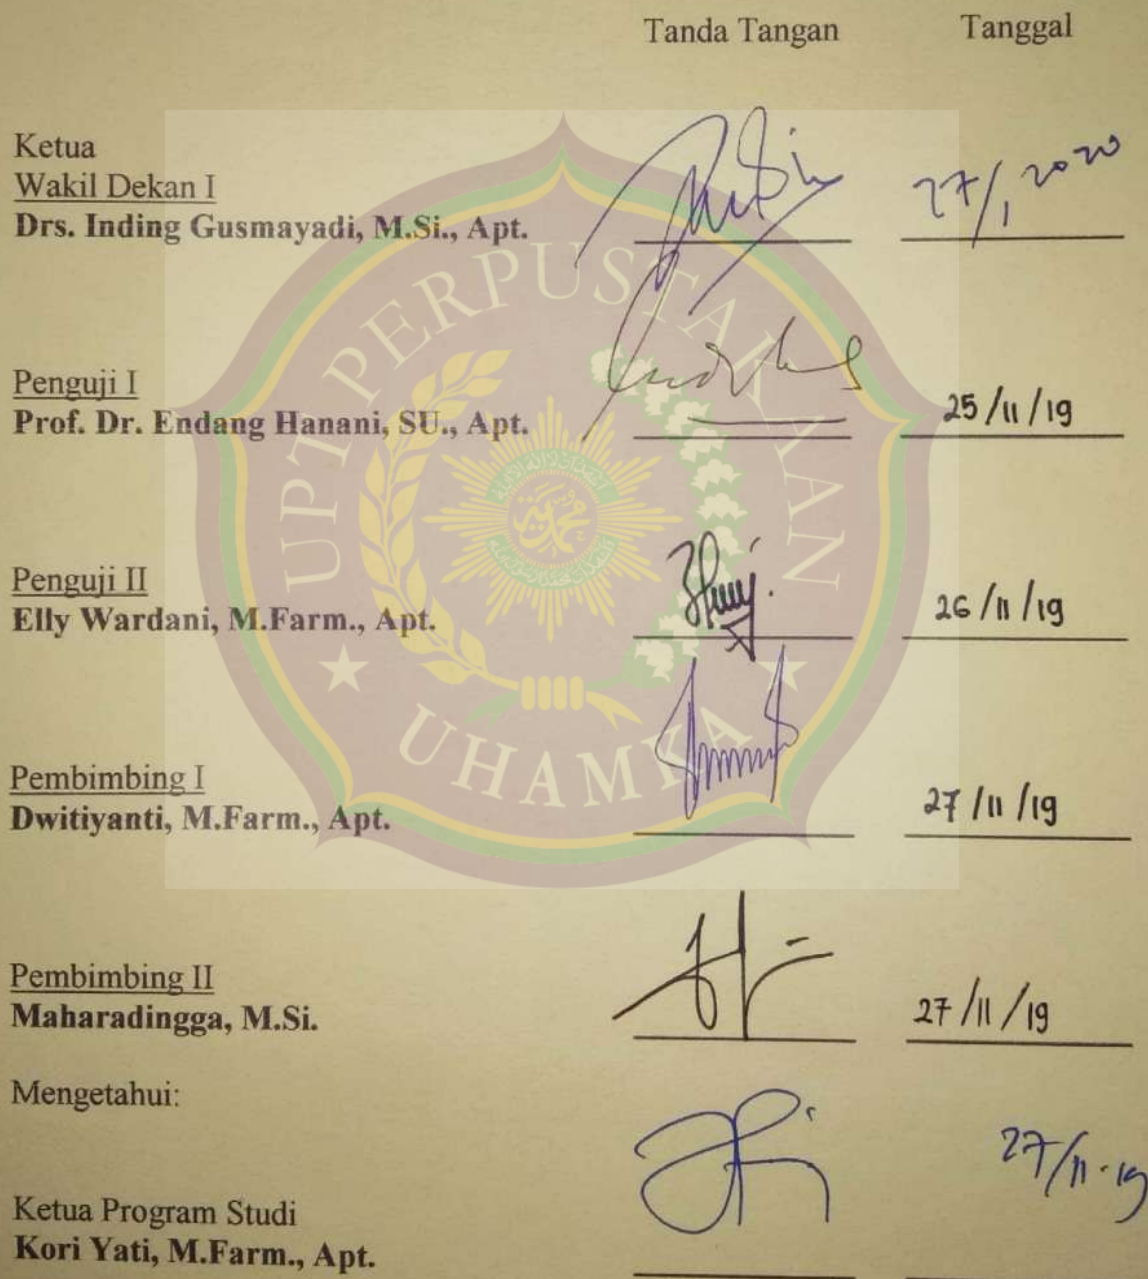 Tanda Tangan Tanggal
Ketua
Wakil Dekan I
Drs. Inding Gusmayadi, M.Si., Apt. 27/1 2020
Penguji I
Prof. Dr. Endang Hanani, SU., Apt. 25/11/19
Penguji II
Elly Wardani, M.Farm., Apt. 26/11/19
Pembimbing I
Dwitiyanti, M.Farm., Apt. 27/11/19
Pembimbing II
Maharadingga, M.Si. 27/11/19
Mengetahui:
27/11-19
Ketua Program Studi
Kori Yati, M.Farm., Apt.
UPT PERPUSTAKAAN
UHAMKA